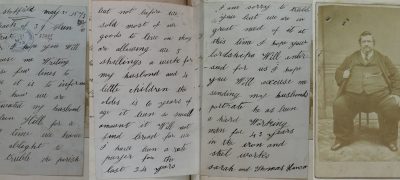 sheffield may 21 1872
I hope you Will
Writing
few lines to
it is to inform
how we are
my husband
been ill for a
time we have
obleght to
truble the parish
but not before we
sold most of our
goods to live on they
are allowing me 5
shillings a week for
my husband and 4
little children the
older is 6 years of
age it been a small
amount it Will not
find bread for us
I have been a rate
payer for the
last 24 years
I am sorry to truble
you but we are in
great need of it at
this time I hope your
lordships Will inter
seed for us I hope
you Will excuse me
sending my husbands
portrate he as been
a hard Working
man for 43 years
in the iron and
steel Works
sarah and thomas